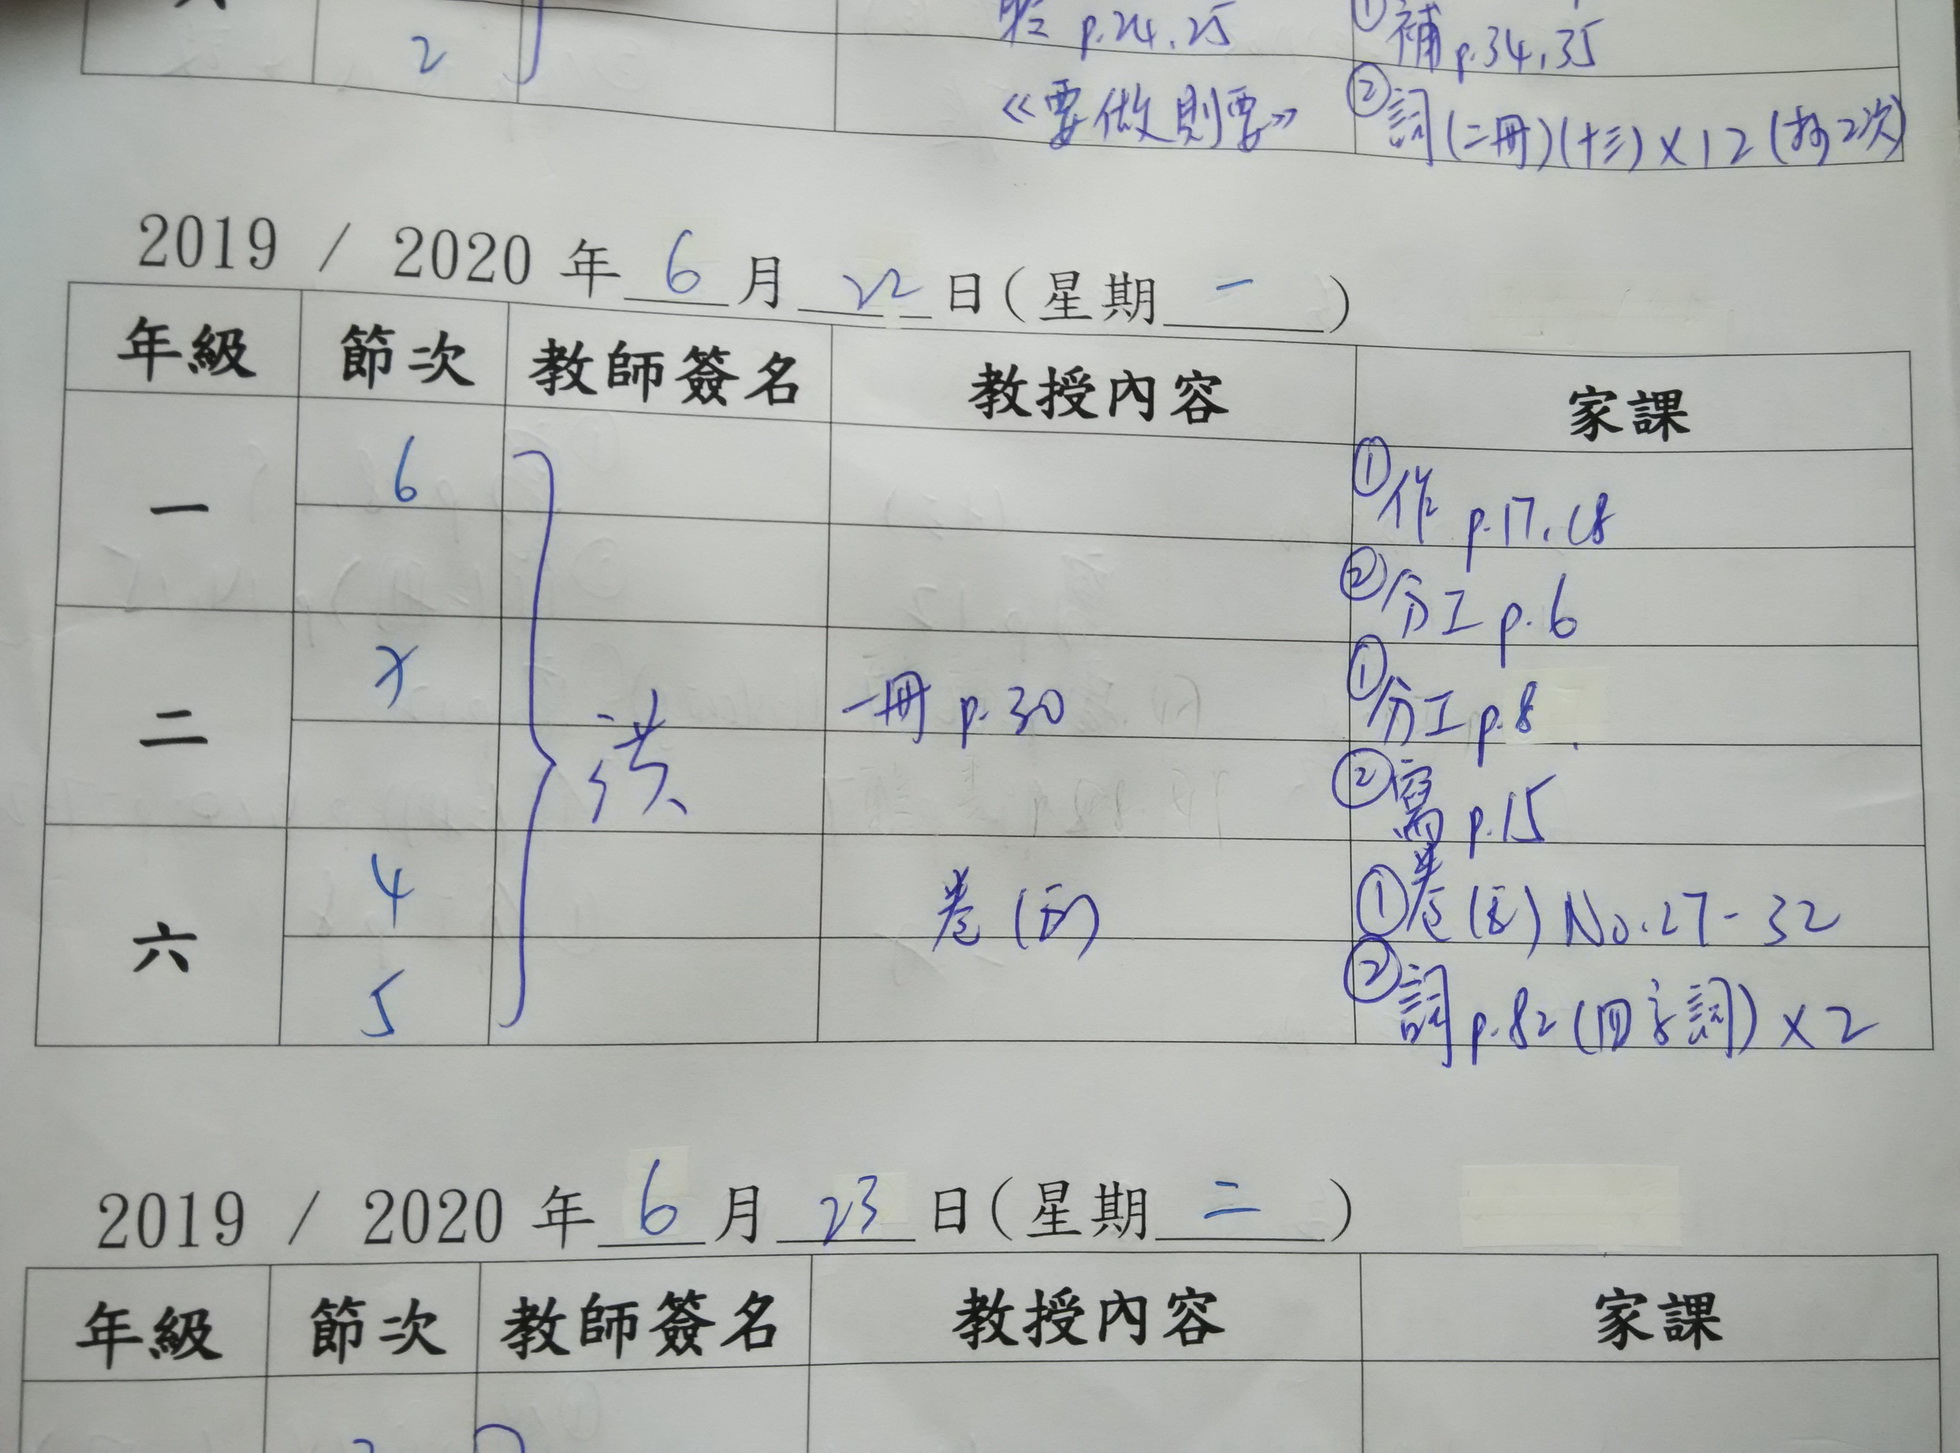 2
p.24.25
① 補 p.34,35
《要做則要》
② 詞(二冊)(十三)×12(抄2次)
2019 / 2020 年 6 月 22 日(星期 一 )
年級 節次 教師簽名 教授內容 家課
一 6 ① 作 p.17.18
② 分工 p.6
二 一冊 p.30 ① 分工 p.8
洪
② 寫 p.15
六 4 卷 ① 卷 No.27-32
5 ② 詞 p.82 (四字詞)×2
2019 / 2020 年 6 月 23 日(星期 二 )
年級 節次 教師簽名 教授內容 家課